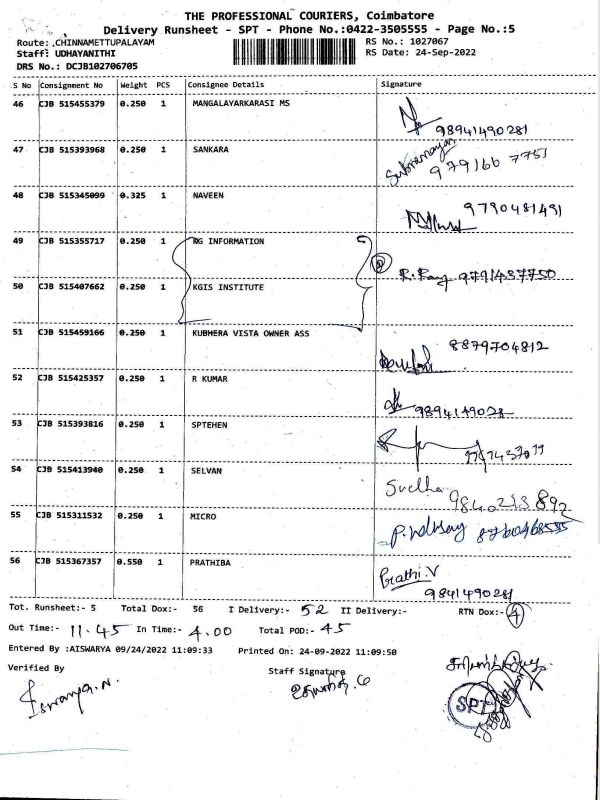 THE PROFESSIONAL COURIERS, Coimbatore
Delivery Runsheet - SPT - Phone No.:0422-3505555 - Page No.:5
Route: CHINNAMETTUPALAYAM RS No.: 1027067
Staff: UDHAYANITHI RS Date: 24-Sep-2022
DRS No.: DCJB102706705
S No Consignment No Weight PCS Consignee Details Signature
46 CJB 515455379 0.250 1 MANGALAYARKARASI MS
98941490281
47 CJB 515393968 0.250 1 SANKARA
Subramaniyan
979166 7751
48 CJB 515345099 0.325 1 NAVEEN
9790481491
49 CJB 515355717 0.250 1 RG INFORMATION
②
9791437750
50 CJB 515407662 0.250 1 KGIS INSTITUTE
51 CJB 515459166 0.250 1 KUBHERA VISTA OWNER ASS
8879704812
52 CJB 515425357 0.250 1 R KUMAR
53 CJB 515393816 0.250 1 SPTEHEN
54 CJB 515413940 0.250 1 SELVAN
Sudha
9840213 892
55 CJB 515311532 0.250 1 MICRO
56 CJB 515367357 0.550 1 PRATHIBA
Prathi.V
9841490281
Tot. Runsheet:- 5 Total Dox:- 56 I Delivery:- 52 II Delivery:- RTN Dox:- 4
Out Time:- 11.45 In Time:- 4.00 Total POD:- 45
Entered By :AISWARYA 09/24/2022 11:09:33 Printed On: 24-09-2022 11:09:50
Verified By Staff Signature
SPT